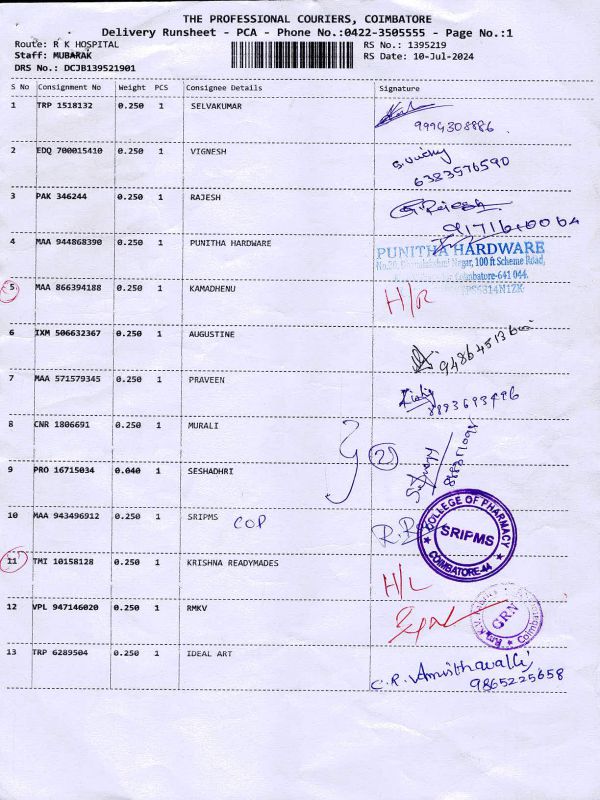 THE PROFESSIONAL COURIERS, COIMBATORE
Delivery Runsheet - PCA - Phone No.:0422-3505555 - Page No.:1
Route: R K HOSPITAL RS No.: 1395219
Staff: MUBARAK RS Date: 10-Jul-2024
DRS No.: DCJB139521901
S No Consignment No Weight PCS Consignee Details Signature
1 TRP 1518132 0.250 1 SELVAKUMAR
9994308886
2 EDQ 700015410 0.250 1 VIGNESH
6383576590
3 PAK 346244 0.250 1 RAJESH G. Rajesh
4 MAA 944868390 0.250 1 PUNITHA HARDWARE
PUNITHA HARDWARE
Nagar, 100 ft Scheme Road,
Coimbatore-641 044.
5 MAA 866394188 0.250 1 KAMADHENU H/R
6 IXM 506632367 0.250 1 AUGUSTINE
7 MAA 571579345 0.250 1 PRAVEEN
8893693496
8 CNR 1806691 0.250 1 MURALI
2
9 PRO 16715034 0.040 1 SESHADHRI
10 MAA 943496912 0.250 1 SRIPMS COP
COLLEGE OF PHARMACY
SRIPMS
COIMBATORE-44
11 TMI 10158128 0.250 1 KRISHNA READYMADES H/L
12 VPL 947146020 0.250 1 RMKV
GRN
13 TRP 6289504 0.250 1 IDEAL ART
C.R. Amirthavalli
9865225658